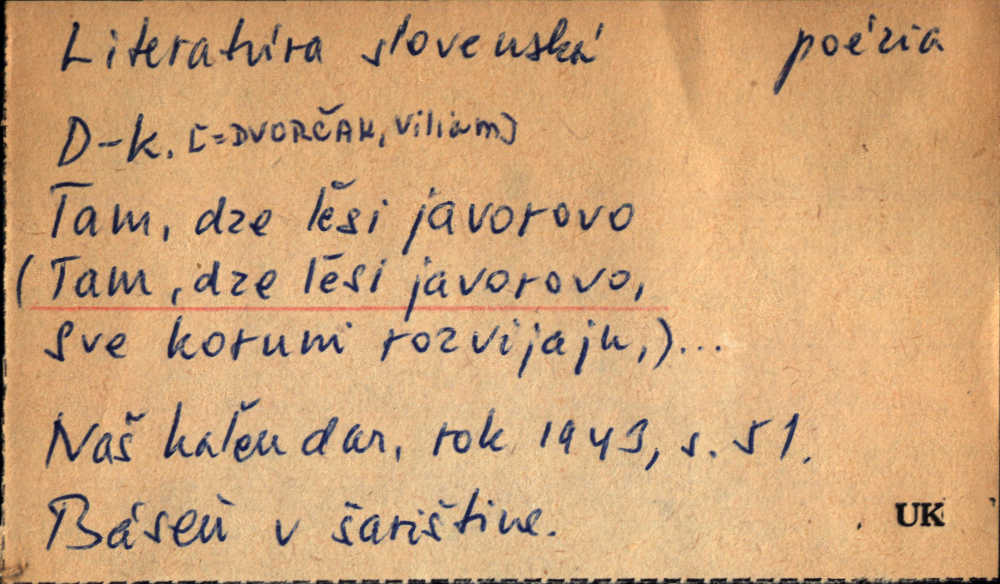 Literatúra slovenská poézia
D-k. [=DVORČAK, Viliam]
Tam, dze lěsi javorovo
(Tam, dze lěsi javorovo,
sve koruni rozvijaju,)...
Naš kaleň dar, rok 1943, s. 51.
Báseň v šarištine.
UK